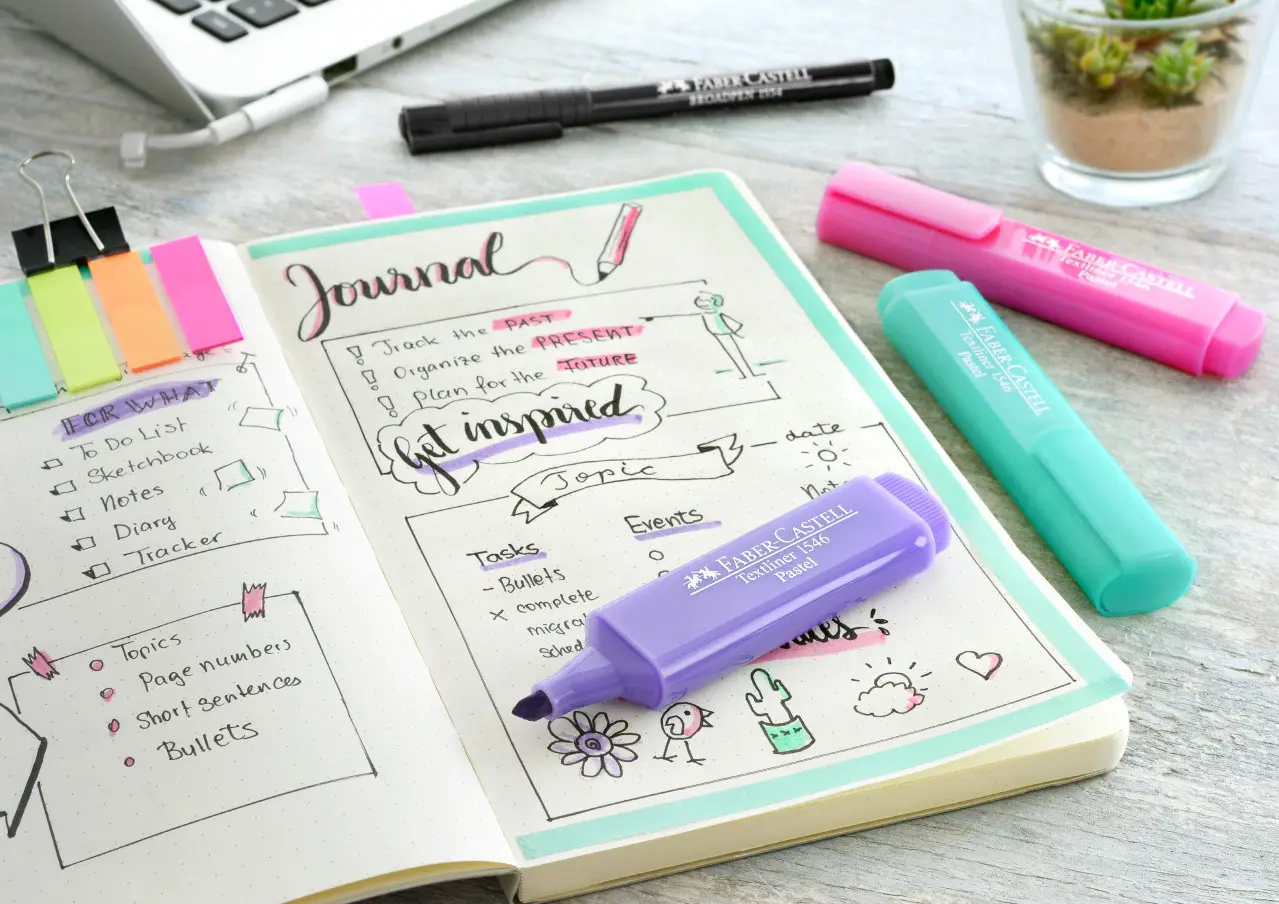 FABER-CASTELL
BROADPEN 1554
FABER-CASTELL
Textliner 1546
Pastel
FABER-CASTELL
Textliner 1546
Pastel
FOR WHAT
To Do List
Sketchbook
Notes
Diary
Tracker
Topics
Page numbers
Short sentences
Bullets
Journal
Track the PAST
Organize the PRESENT
Plan for the FUTURE
Get inspired
Topic
date
Tasks
- Bullets
x complete
Events
FABER-CASTELL
Textliner 1546
Pastel